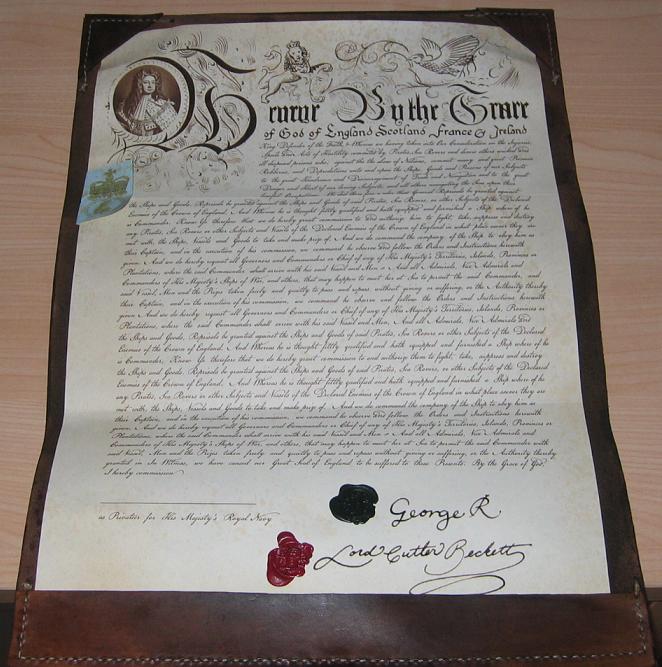 George By the Grace
of God of England Scotland France & Ireland
King, Defender of the Faith, &c Whereas we having taken into Our Consideration the Injuries
Spoils and Acts of Hostility committed by Pirates, Sea Rovers and
Robberies, and Depredations upon the Ships, Goods and Persons of our Subjects
to the great Hindrance and Discouragement of Trade and Navigation and to the great
Danger and Hurt of our loving Subjects,
the Ships and Goods. Reprisals be granted against the Ships and Goods of and Pirates, Sea Rovers, or other Subjects of the Declared
Enemies of the Crown of England. And Whereas he is thought fittly qualified and hath equipped and furnished a Ship where of he
is Commander, Know Ye therefore that we do hereby grant commission to and him to fight, take, suppress and destroy
any Pirates, Sea Rovers or other Subjects and Vessels of the Declared Enemies of the Crown of England in what place soever they are
met with, the Ships, Vessels and Goods to take and make prey of. And we do command the company of the Ship to obey him as
their Captain, and in the execution of his commission, we command he observe and follow the Orders and Instructions herewith
given. And we do hereby request all Governors and Commanders or Chief of any of His Majesty's Territories, Islands, Provinces or
Plantations, where the said Commander shall arrive with his said Vessel and Men & And all Admirals, Vice Admirals and
Commanders of His Majesty's Ships of War, and others, that may happen to meet her at Sea to permit the said Commander, and
said Vessel, Men and the Prizes taken freely and quietly to pass and repass without giving or suffering, or the Authority thereby
their Captain, and in the execution of his commission, we command he observe and follow the Orders and Instructions herewith
given. And we do hereby request all Governors and Commanders or Chief of any of His Majesty's Territories, Islands, Provinces or
Plantations, where the said Commander shall arrive with his said Vessel and Men, And all Admirals, Vice Admirals And
the Ships and Goods, Reprisals be granted against the Ships and Goods of and Pirates, Sea Rovers, or other Subjects of the Declared
Enemies of the Crown of England. And Whereas he is thought fittly qualified and hath equipped and furnished a Ship where of he
is Commander, Know Ye therefore that we do hereby grant commission to and authority them to fight, take, suppress and destroy
the Ships and Goods. Reprisals be granted against the Ships and Goods of and Pirates, Sea Rovers, or other Subjects of the Declared
Enemies of the Crown of England. And Whereas he is thought fittly qualified and hath equipped and furnished a Ship where of he
any Pirates, Sea Rovers or other Subjects and Vessels of the Declared Enemies of the Crown of England in what place soever they are
met with, the Ships, Vessels and Goods to take and make prey of. And we do command the company of the Ship to obey him as
their Captain, and in the execution of his commission, we command he observe and follow the Orders and Instructions herewith
given. And we do hereby request all Governors and Commanders or Chief of any of His Majesty's Territories, Islands, Provinces or
Plantations, where the said Commander shall arrive with his said Vessel and Men & And all Admirals, Vice Admirals and
Commanders of His Majesty's Ships of War, and others, that may happen to meet her at Sea to permit the said Commander with
said Vessel, Men and the Prizes taken freely and quietly to pass and repass without giving or suffering, or the Authority thereby
granted in In Witness, we have caused our Great Seal of England to be affixed to these Presents. By the Grace of God,
I hereby commission
as Privateer for His Majesty's Royal Navy
George R
Lord Cutler Beckett